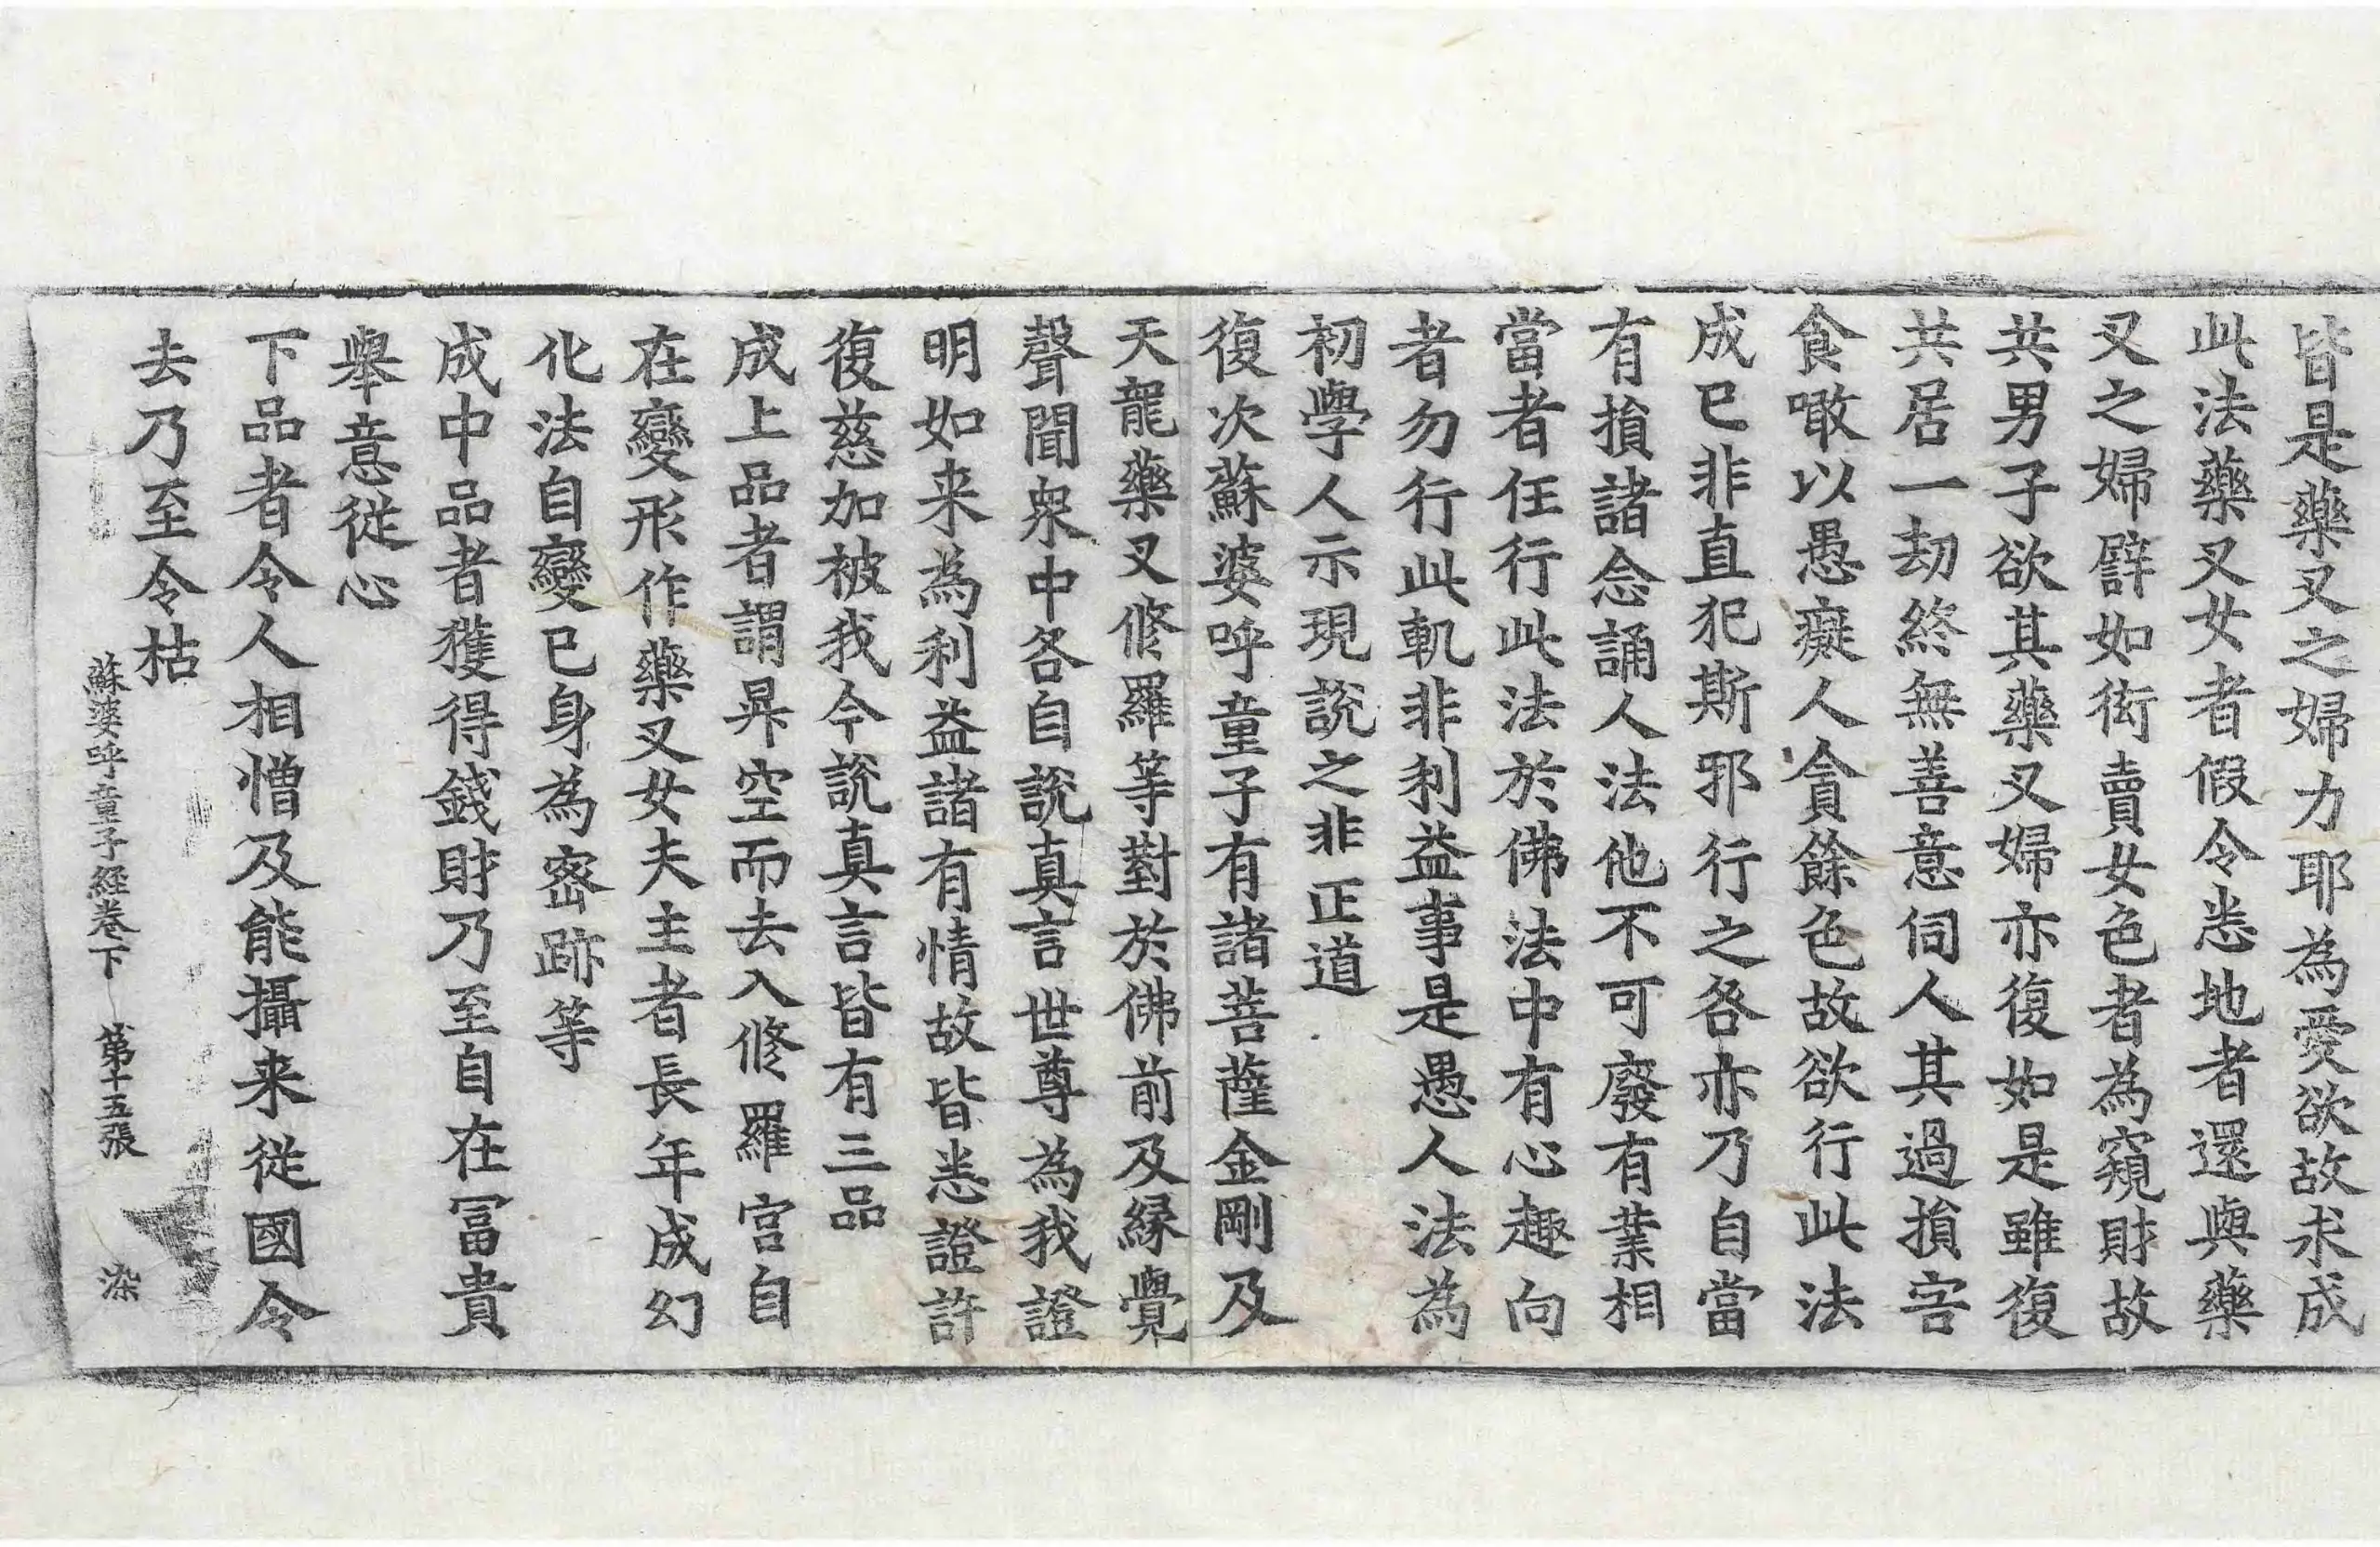 皆是藥叉之婦力耶為愛欲故求成
此法藥叉女者假令悉地者還與藥
叉之婦譬如衒賣女色者為窺財故
共男子欲其藥叉婦亦復如是雖復
共居一劫終無善意伺人其過損害
食噉以愚癡人貪餘色故欲行此法
成已非直犯斯邪行之咎亦乃自當
有損諸念誦人法他不可廢有業相
當者任行此法於佛法中有心趣向
者勿行此軌非利益事是愚人法為
初學人示現說之非正道
復次蘇婆呼童子有諸菩薩金剛及
天龍藥叉修羅等對於佛前及緣覺
聲聞衆中各自說真言世尊為我證
明如来為利益諸有情故皆悉證許
復慈加被我今說真言皆有三品
成上品者謂昇空而去入修羅宮自
在變形作藥叉女夫主者長年成幻
化法自變已身為密跡等
成中品者獲得錢財乃至自在冨貴
舉意從心
下品者令人相憎及能攝来從國令
去乃至令枯
蘇婆呼童子經卷下 第十五張 染